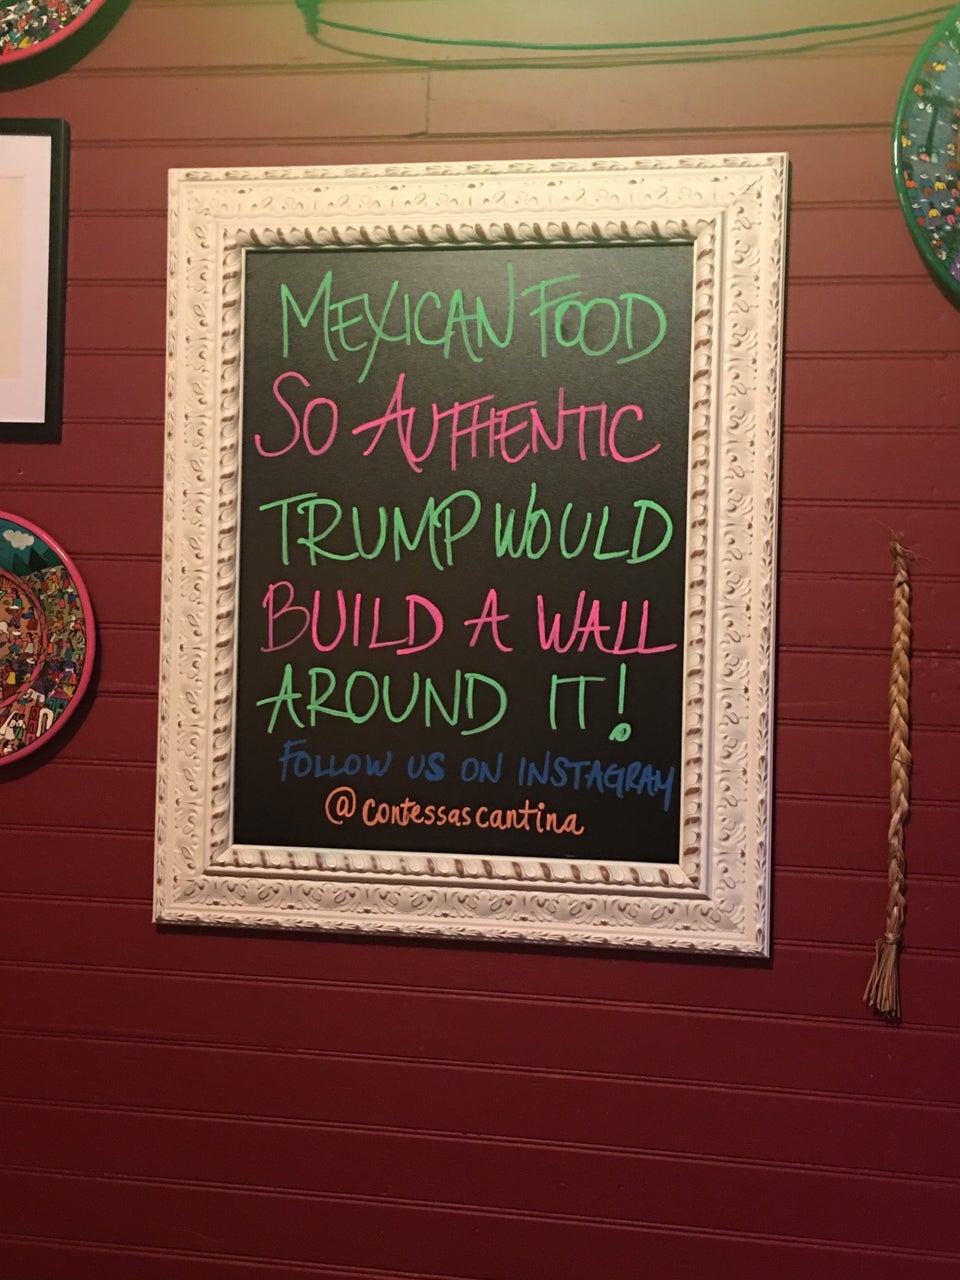 MEXICAN FOOD
SO AUTHENTIC
TRUMP WOULD
BUILD A WALL
AROUND IT!
FOLLOW US ON INSTAGRAM
@contessascantina